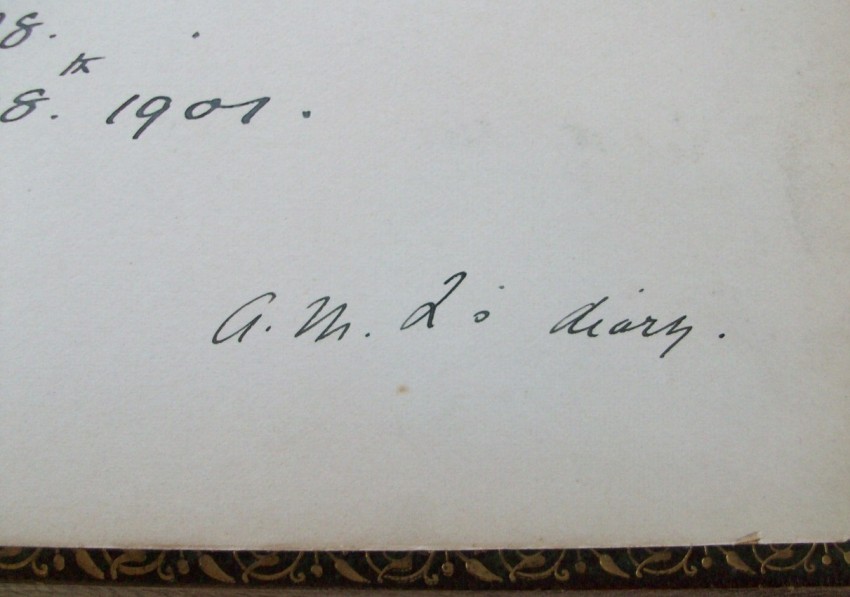 8.
8.th 1901.
A. M. L's diary.